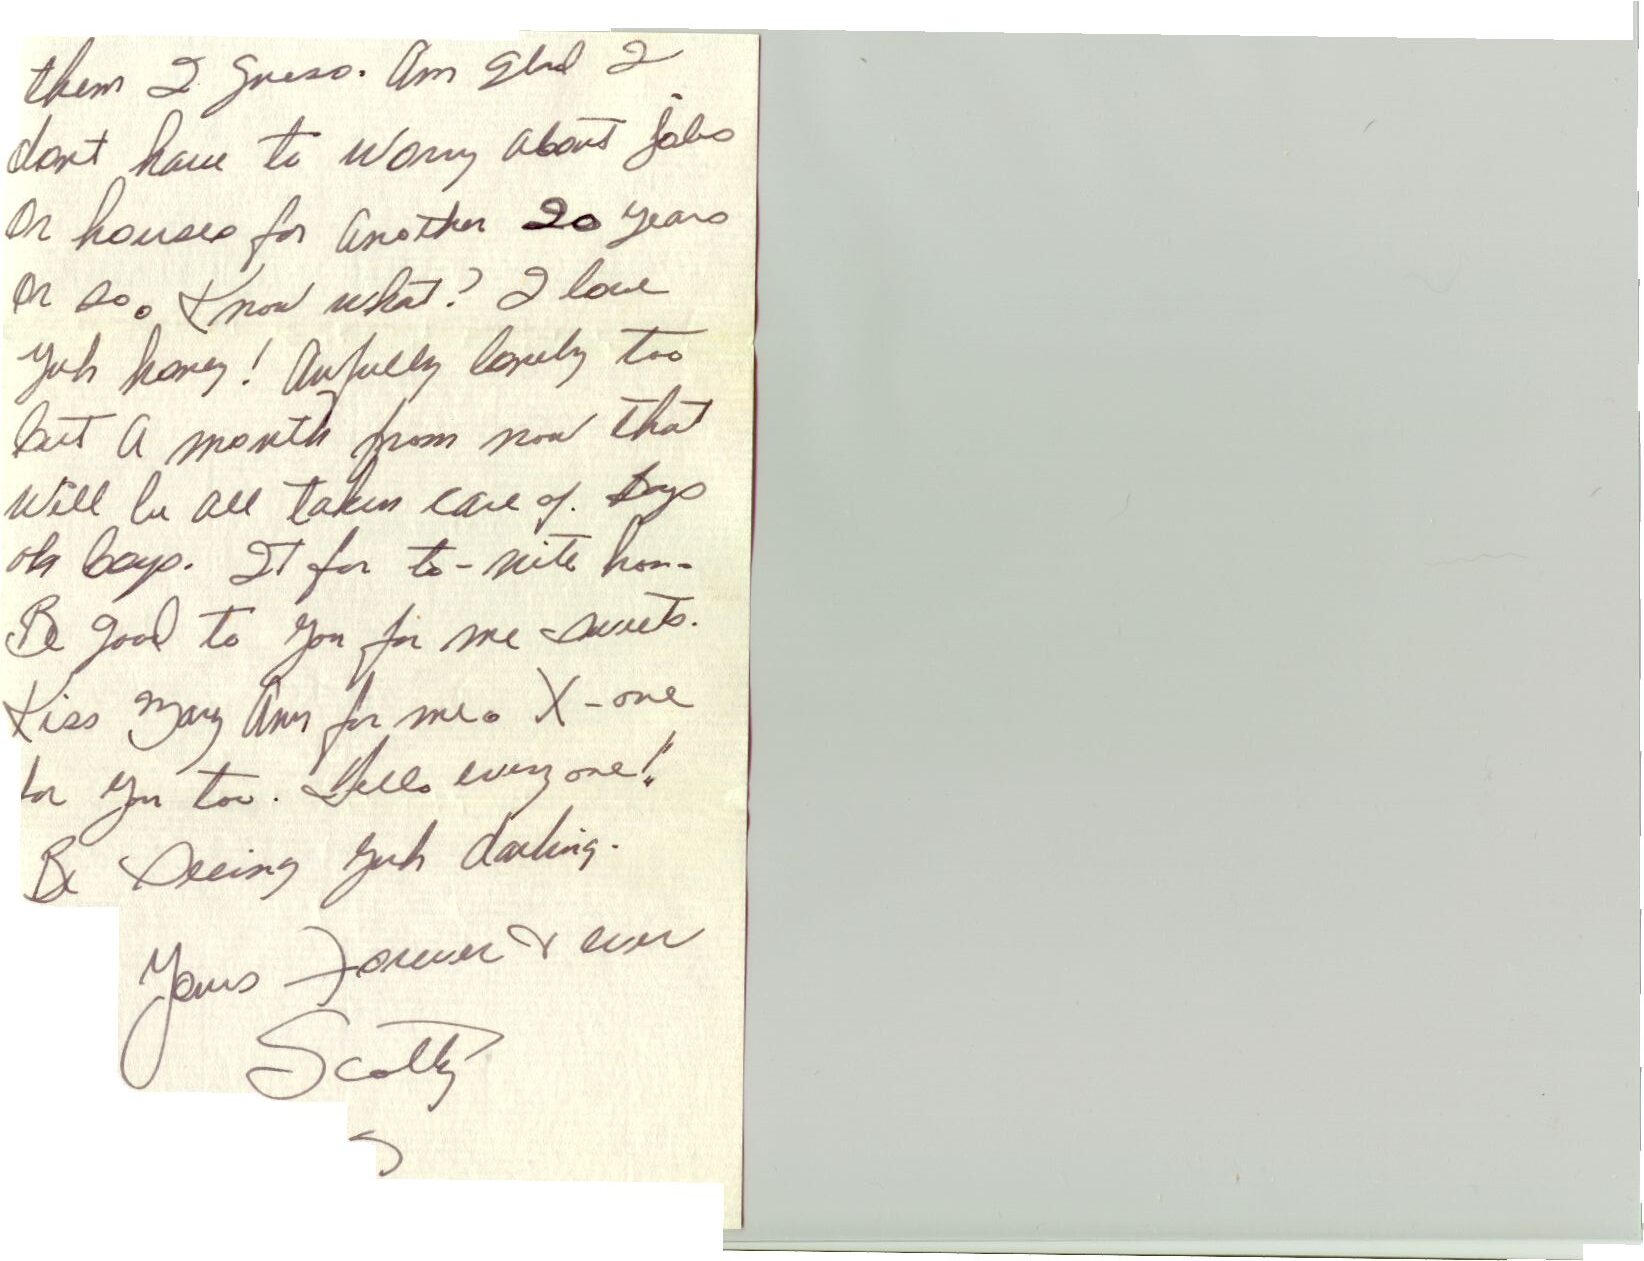 them I guess. Am glad I
don't have to worry about jobs
or houses for another 20 years
or so. Know what? I love
yuh honey! Awfully lonely too
but a month from now that
will be all taken care of. Boys
oh boys. It for to-nite hon.
Be good to you for me sweets.
Kiss Mary Ann for me. X-one
for you too. Hello everyone!"
Be seeing yuh darling.
Yours Forever & ever
Scotty